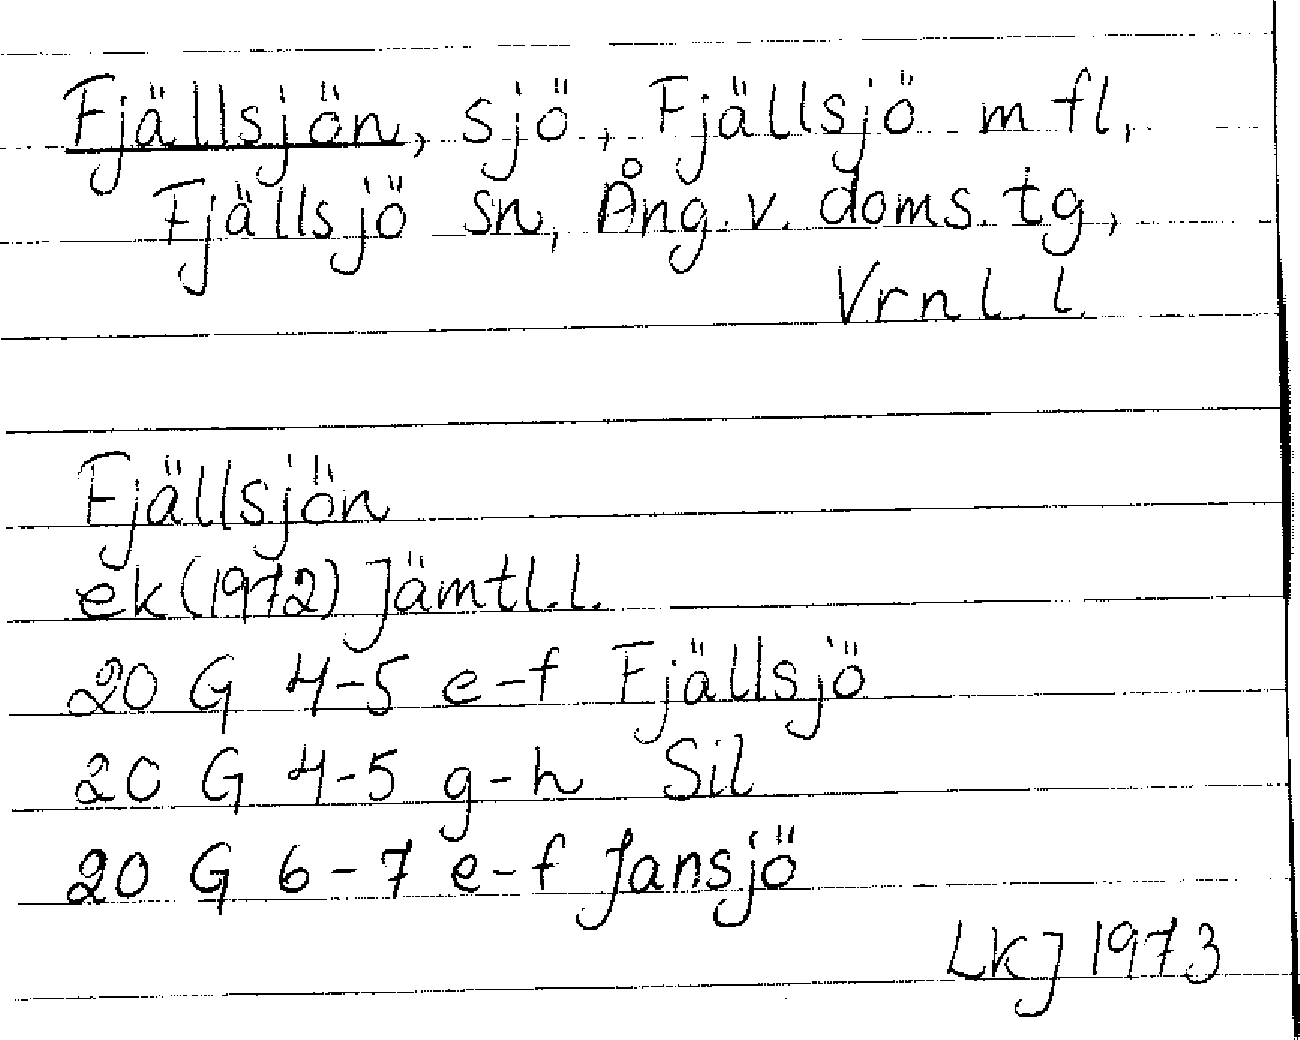 Fjällsjön, sjö, Fjällsjö m fl,
Fjällsjö sn, Ång. v. doms. tg,
Vrnl. l.
Fjällsjön
ek (1972) Jämtl. l.
20 G 4-5 e-f Fjällsjö
20 G 4-5 g-h Sil
20 G 6-7 e-f Jansjö
LKJ 1973